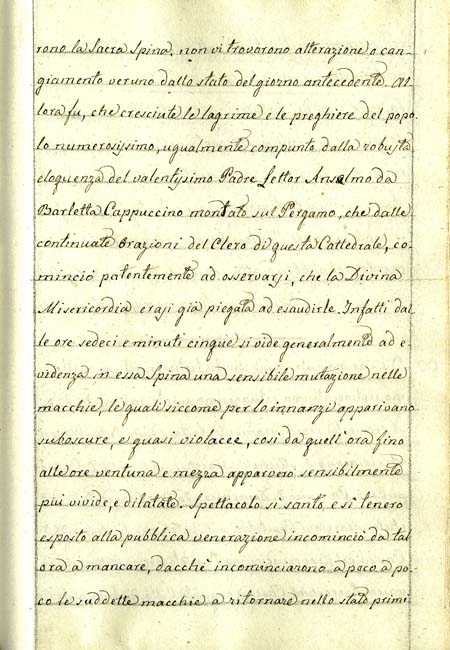 rono la Sacra Spina, non vi trovorono alterazione o can-
giamento veruno dallo stato del giorno antecedente. Al-
lora fu, che cresciute le lagrime e le preghiere del popo-
lo numerosissimo, ugualmente compunto dalla robusta
eloquenza del valentissimo Padre Lettor Anselmo da
Barletta Cappuccino montato sul Pergamo, che dalle
continuate Orazioni del Clero di questa Cattedrale, co-
minciò patentemente ad osservarsi, che la Divina
Misericordia erasi già piegata ad esaudirle. Infatti dal-
le ore sedeci e minuti cinque si vide generalmente ad e-
videnza in essa Spina una sensibile mutazione nelle
macchie, le quali siccome per lo innanzi apparivano
suboscure, e quasi violacee, così da quell'ora fino
alle ore ventuna e mezza apparvero sensibilmente
più vivide, e dilatate. Spettacolo sì santo, e sì tenero
esposto alla pubblica venerazione incominciò da tal
ora a mancare, dacchè incominciarono a poco a po-
co le suddette macchie a ritornare nello stato primi-